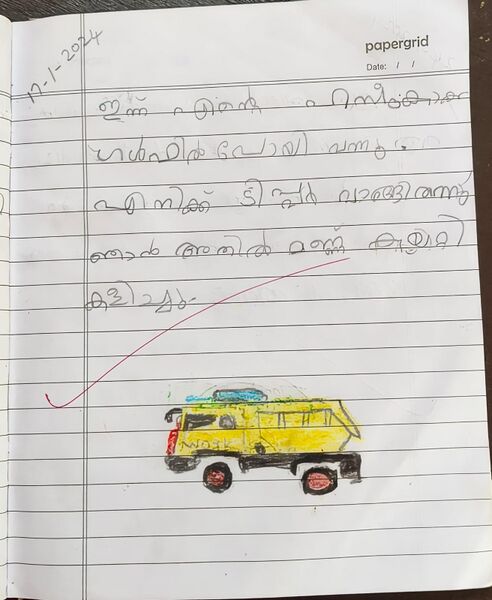 17-1-2024
papergrid
Date: / /
ഇന്ന് എന്റെ
ഗൾഫിൽ പോയി വന്നു.
എനിക്ക് ടിപ്പർ വാങ്ങിതന്നു
ഞാൻ അതിൽ മണ്ണ് കയറ്റി
കളിച്ചു.